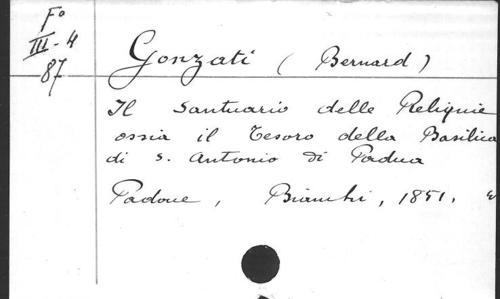 Fo
III-4
87
Gonzati (Bernard)
Il Santuario delle Reliquie
ossia il Tesoro della Basilica
di S. Antonio di Padua
Padoue, Bianchi, 1851.